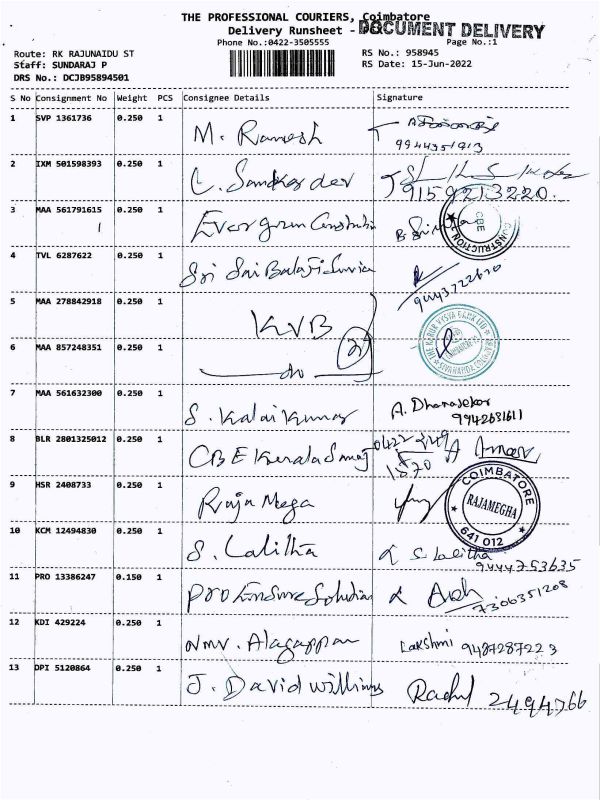 THE PROFESSIONAL COURIERS, Coimbatore
Delivery Runsheet - DOCUMENT DELIVERY
Phone No.:0422-3505555 Page No.:1
Route: RK RAJUNAIDU ST RS No.: 958945
Staff: SUNDARAJ P RS Date: 15-Jun-2022
DRS No.: DCJB95894501
S No Consignment No Weight PCS Consignee Details Signature
1 SVP 1361736 0.250 1 M. Ramesh
9944351913
2 IXM 501598393 0.250 1
9159213220.
3 MAA 561791615 0.250 1
CBE
CONSTRUCTION
4 TVL 6287622 0.250 1 Sri Sai Balaji
9443722670
5 MAA 278842918 0.250 1 KVB
2
THE KARUR VYSYA BANK LTD
6 MAA 857248351 0.250 1 do
7 MAA 561632300 0.250 1 S. Kalai Kumar A. Dhanasekar
9942631611
8 BLR 2801325012 0.250 1 CBE Kerala
0422
9 HSR 2408733 0.250 1 Raja Mega
COIMBATORE
RAJAMEGHA
641 012
10 KCM 12494830 0.250 1 S. Lalitha S Lalitha
9444753635
11 PRO 13386247 0.150 1 Pro Ensure Solution
7306351208
12 KDI 429224 0.250 1 NMV. Alagappan Lakshmi 9487287223
13 DPI 5120864 0.250 1 J. David Williums Rachel 2494766